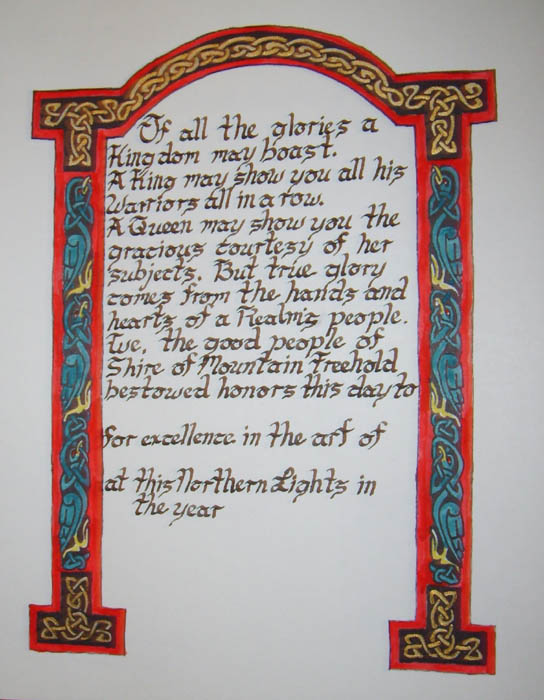 Of all the glories a
Kingdom may boast.
A King may show you all his
Warriors all in a row.
A Queen may show you the
gracious courtesy of her
subjects. But true glory
comes from the hands and
hearts of a Realm's people.
We, the good people of
Shire of Mountain Freehold
bestowed honors this day to
for excellence in the art of
at this Northern Lights in
the year